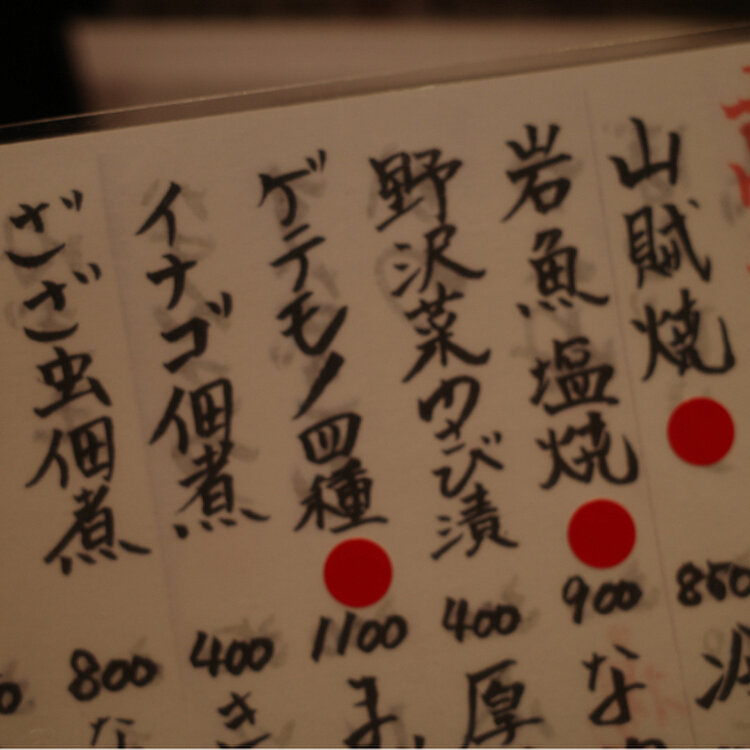 山賊焼
850
岩魚塩焼
900
野沢菜わさび漬
400
ゲテモノ四種
1100
イナゴ佃煮
400
ざざ虫佃煮
800
な
厚
き
な